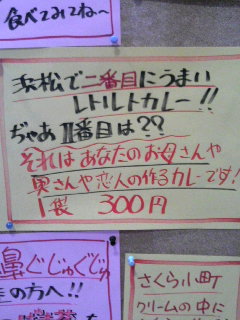 食べてみてね〜
浜松で二番目にうまい
レトルトカレー!!
ぢゃあ1番目は??
それはあなたのお母さんや
奥さんや恋人の作るカレーです!
1袋 300円
鼻ぐじゅぐじゅ
の方へ!!
さくら小町
クリームの中に